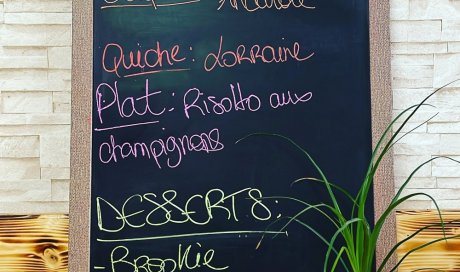 Quiche: Lorraine
Plat: Risotto aux
champignons
DESSERTS:
- Brookie